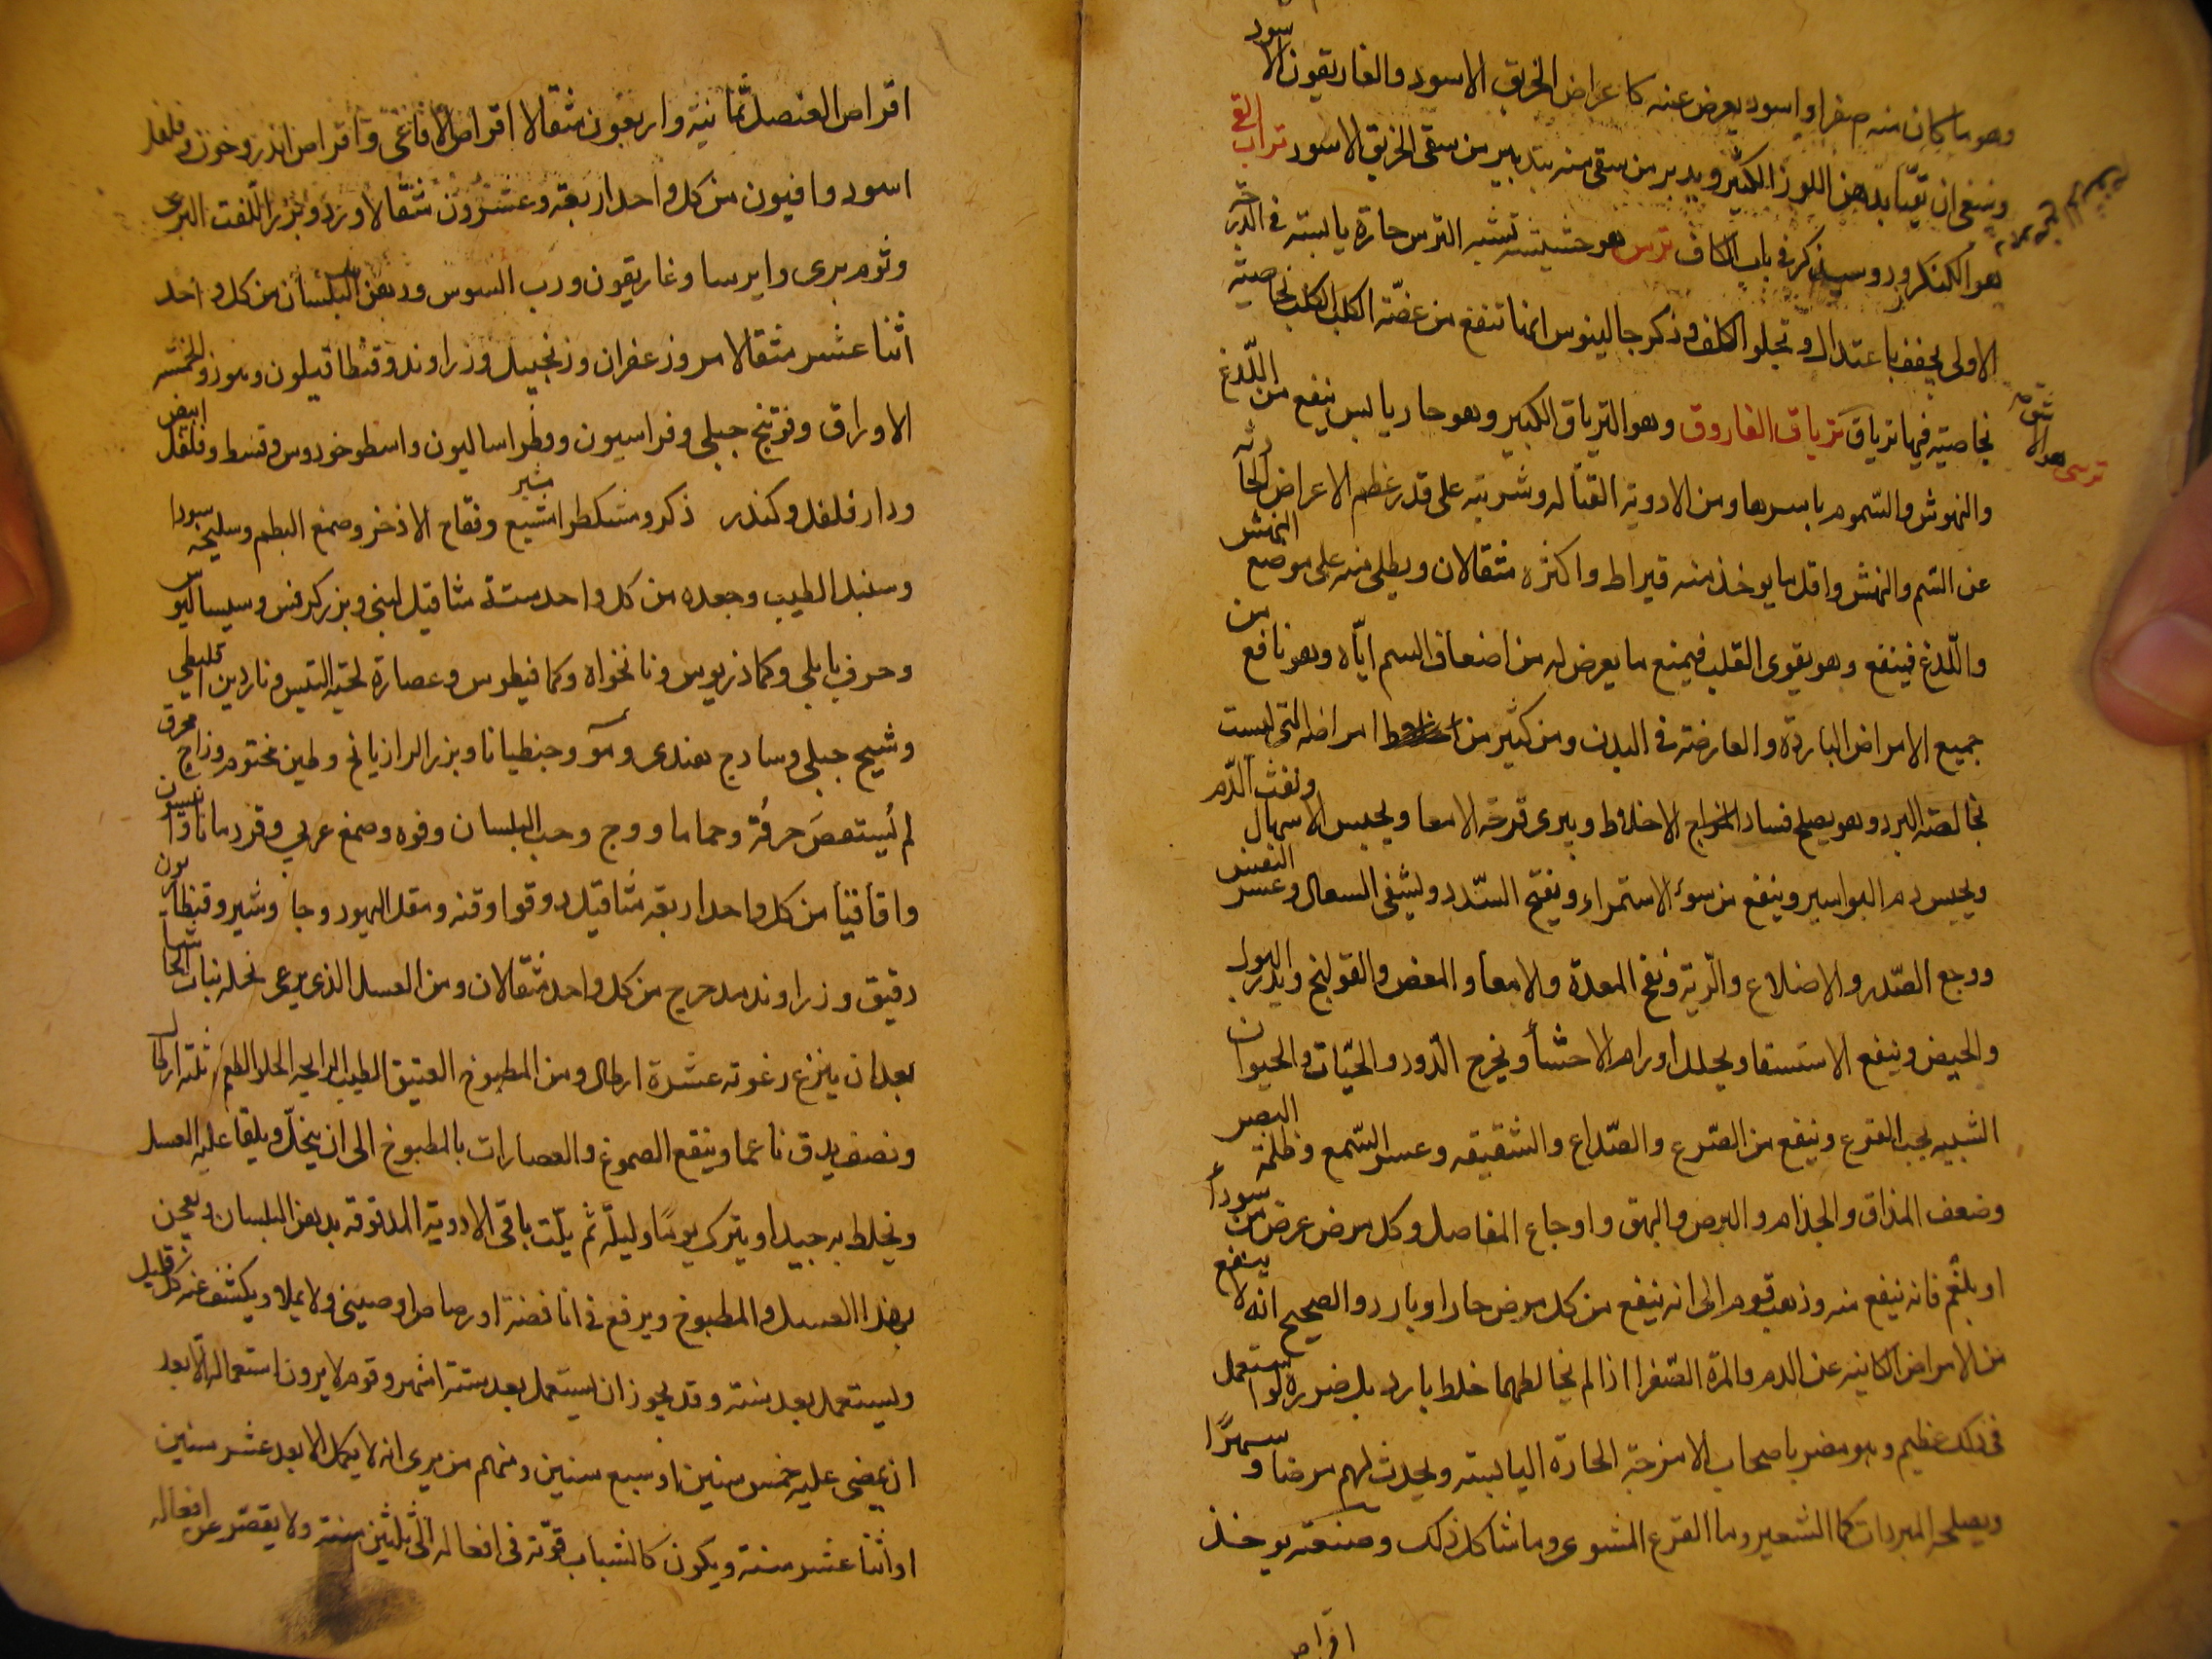 وهو ما كان منه صفرا واسود يعرض عنه كاعراض الخربق الاسود والغاريقون الاسود
وينبغى ان تقيّا بدهن اللوز الكثير ويدبر من سقى منه بتدبير من سقى الخربق الاسود تراب القى
هو الكنكرزد وسيذكر فى باب الكاف ترس هو حشيشه تشبه الترس حارة يابسته فى الدرجة
الاولى يجفف باعتدال وتجلوا الكلف وذكر جالينوس انها تنفع من عضّة الكلب الكلب بخاصيته
بخاصيته فيها ترياق ترياق الفاروق وهو الترياق الكبير وهو حار يابس ينفع من اللّدغ
والنهوش والسّموم باسرها ومن الادوية القتاله وشربته على قدر عظم الاعراض الحادثه
عن السّم والنهش واقل ما يوخذ منه قيراط واكثره مثقالان ويطلى منه على موضع النهش
واللّدغ فينفع وهو يقوى القلب فيمنع ما يعرض له من اضعاف السم ايّاه وهو نافع من
جميع الامراض الباردة والعارضة فى البدن ومن كثير من امراضه التى ليست
بخالصة البرد وهو يصلح فساد المزاج الاخلاط ويبرى قرحة الامعا ويحبس الاسهال ونفث الدّم
ويحبس دم البواسير وينفع من سوء الاستمراء ويفتح السّدد ويشفى السعال وعسر النفس
ووجع الصّدر والاضلاع والرّية ونفخ المعدة والامعا والمغص والقولنج ويدر البول
والحيض وينفع الاستسقا ويحلل اورام الاحشاء ويخرج الدّود والحيّات والحيوان
الشبيه بحب القرع وينفع من الصّرع والصّداع والشقيقه وعسر السّمع وظلمة البصر
وضعف المذاق والجذام والبرص والبهق واوجاع المفاصل وكل مرض عرض من سوداء
او بلغم فانه ينفع منه وذهب قوم الى انه ينفع من كل مرض حار او بارد والصحيح انه لا ينفع
من الامراض الكاينه عن الدم والمرة الصّفرا اذا لم يخالطهما خلط بارد بل ضرره لو استعمل
فى ذلك عظيم وهو مضر باصحاب الامزجة الحارة اليابسته ويحدث لهم مرضا وسهرًا
ويصلحه المبردات كما الشعير وما القرع المشوى وما شاكل ذلك وصنعته يوخذ
اقراص
ترسى هو الاشقّ
اقراص العنصل ثمانية واربعون مثقالا اقراص الافاعى واقراص اندروخون وفلفل
اسود وافيون من كل واحد اربعة وعشرون مثقالا ورد وبزر اللّفت البرى
وثوم برى وايرسا وغاريقون ورب السوس ودهن البلسان من كل واحد
اثنا عشر مثقالا مر وزعفران وزنجبيل وزراوند وقنطافيلون وهو ذو الخمسة
الاوراق وفوتنج جبلى وفراسيون وفطراساليون واسطوخودوس وقسط وفلفل ابيض
ودار فلفل وكندر ذكر ومشكطرامشيع وفقاح الاذخر وصمغ البطم وسليخه سودا
وسنبل الطيب وجعده من كل واحد ستة مثاقيل لبنى وبزر كرفس وسيساليوس
وحرف بابلى وكماذريوس ونانخواه وكمافيطوس وعصارة لحية التيس وناردين اقليطى
وشيح جبلى وسادج هندى ومو وجنطيانا وبزر الرازيانج وطين مختوم وزاج محرق
لم يُستقصَ حرقُه وحماما ووج وحب البلسان وفوه وصمغ عربى وقردمانا وانيسون
واقاقيا من كل واحد اربعة مثاقيل دوقوا وقنه ومقل اليهود وجاوشير وقنطاريون
دقيق وزراوند مدحرج من كل واحد مثقالان ومن العسل الذى يرعى نحله نبات الحاشا
بعد ان ينزع رغوته عشرة ارطال ومن المطبوخ العتيق الطيب الرايحه الحلو الطعم ثلثه ارطال
ونصف يدق ناعما وينقع الصموغ والعصارات بالمطبوخ الى ان ينحلّ ويلقا عليه العسل
ويخلط به جيدا ويترك يومًا وليلة ثم يلّت باقى الادوية المدقوقه بدهن البلسان ويعجن
بهذا العسل والمطبوخ ويرفع فى انا فضة او رصاص او صينى ولا يملا ويكشف عنه كل قليل
ويستعمل بعد سنة وقد يجوز ان يستعمل بعد ستة اشهر وقوم لا يرون استعماله الا بعد
ان يمضى عليه خمس سنين او سبع سنين ومنهم من يرى انه لا يكمل الا بعد عشر سنين
او اثنا عشر سنة ويكون كالشباب قوّته فى افعاله الى ثلثين سنة ولا يقصّر عن افعاله